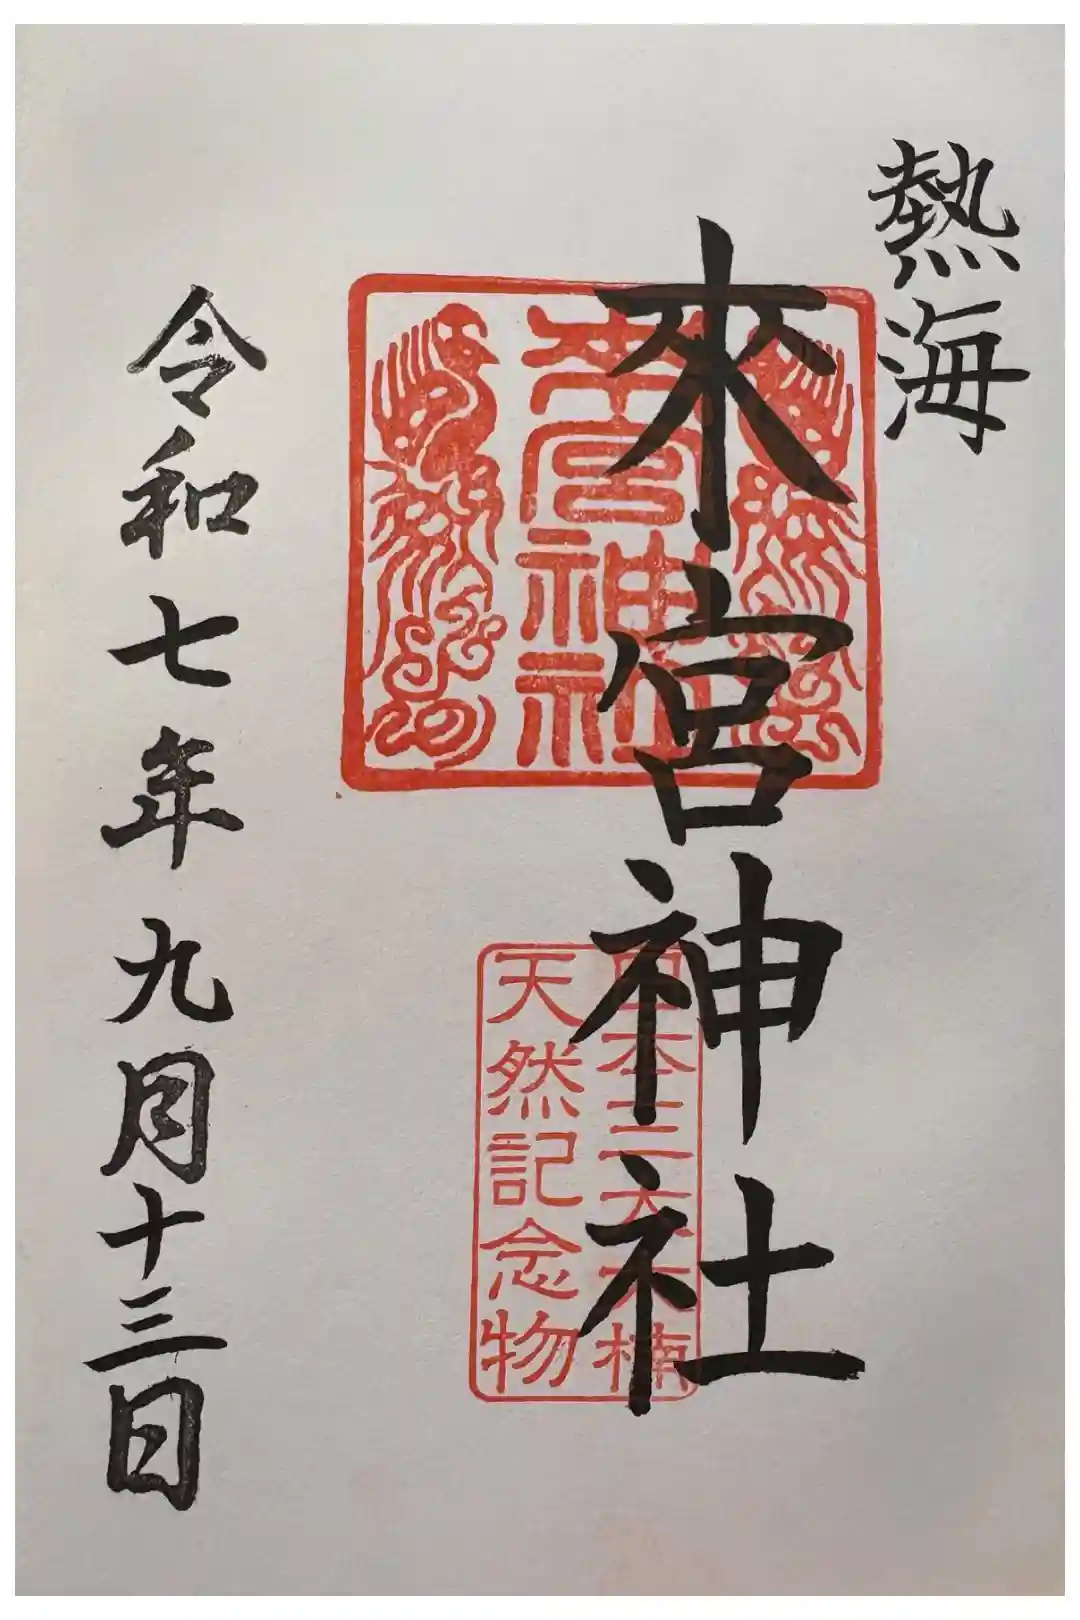 熱海
來宮神社
來宮
神社
日本三大大楠
天然記念物
令和七年九月十三日